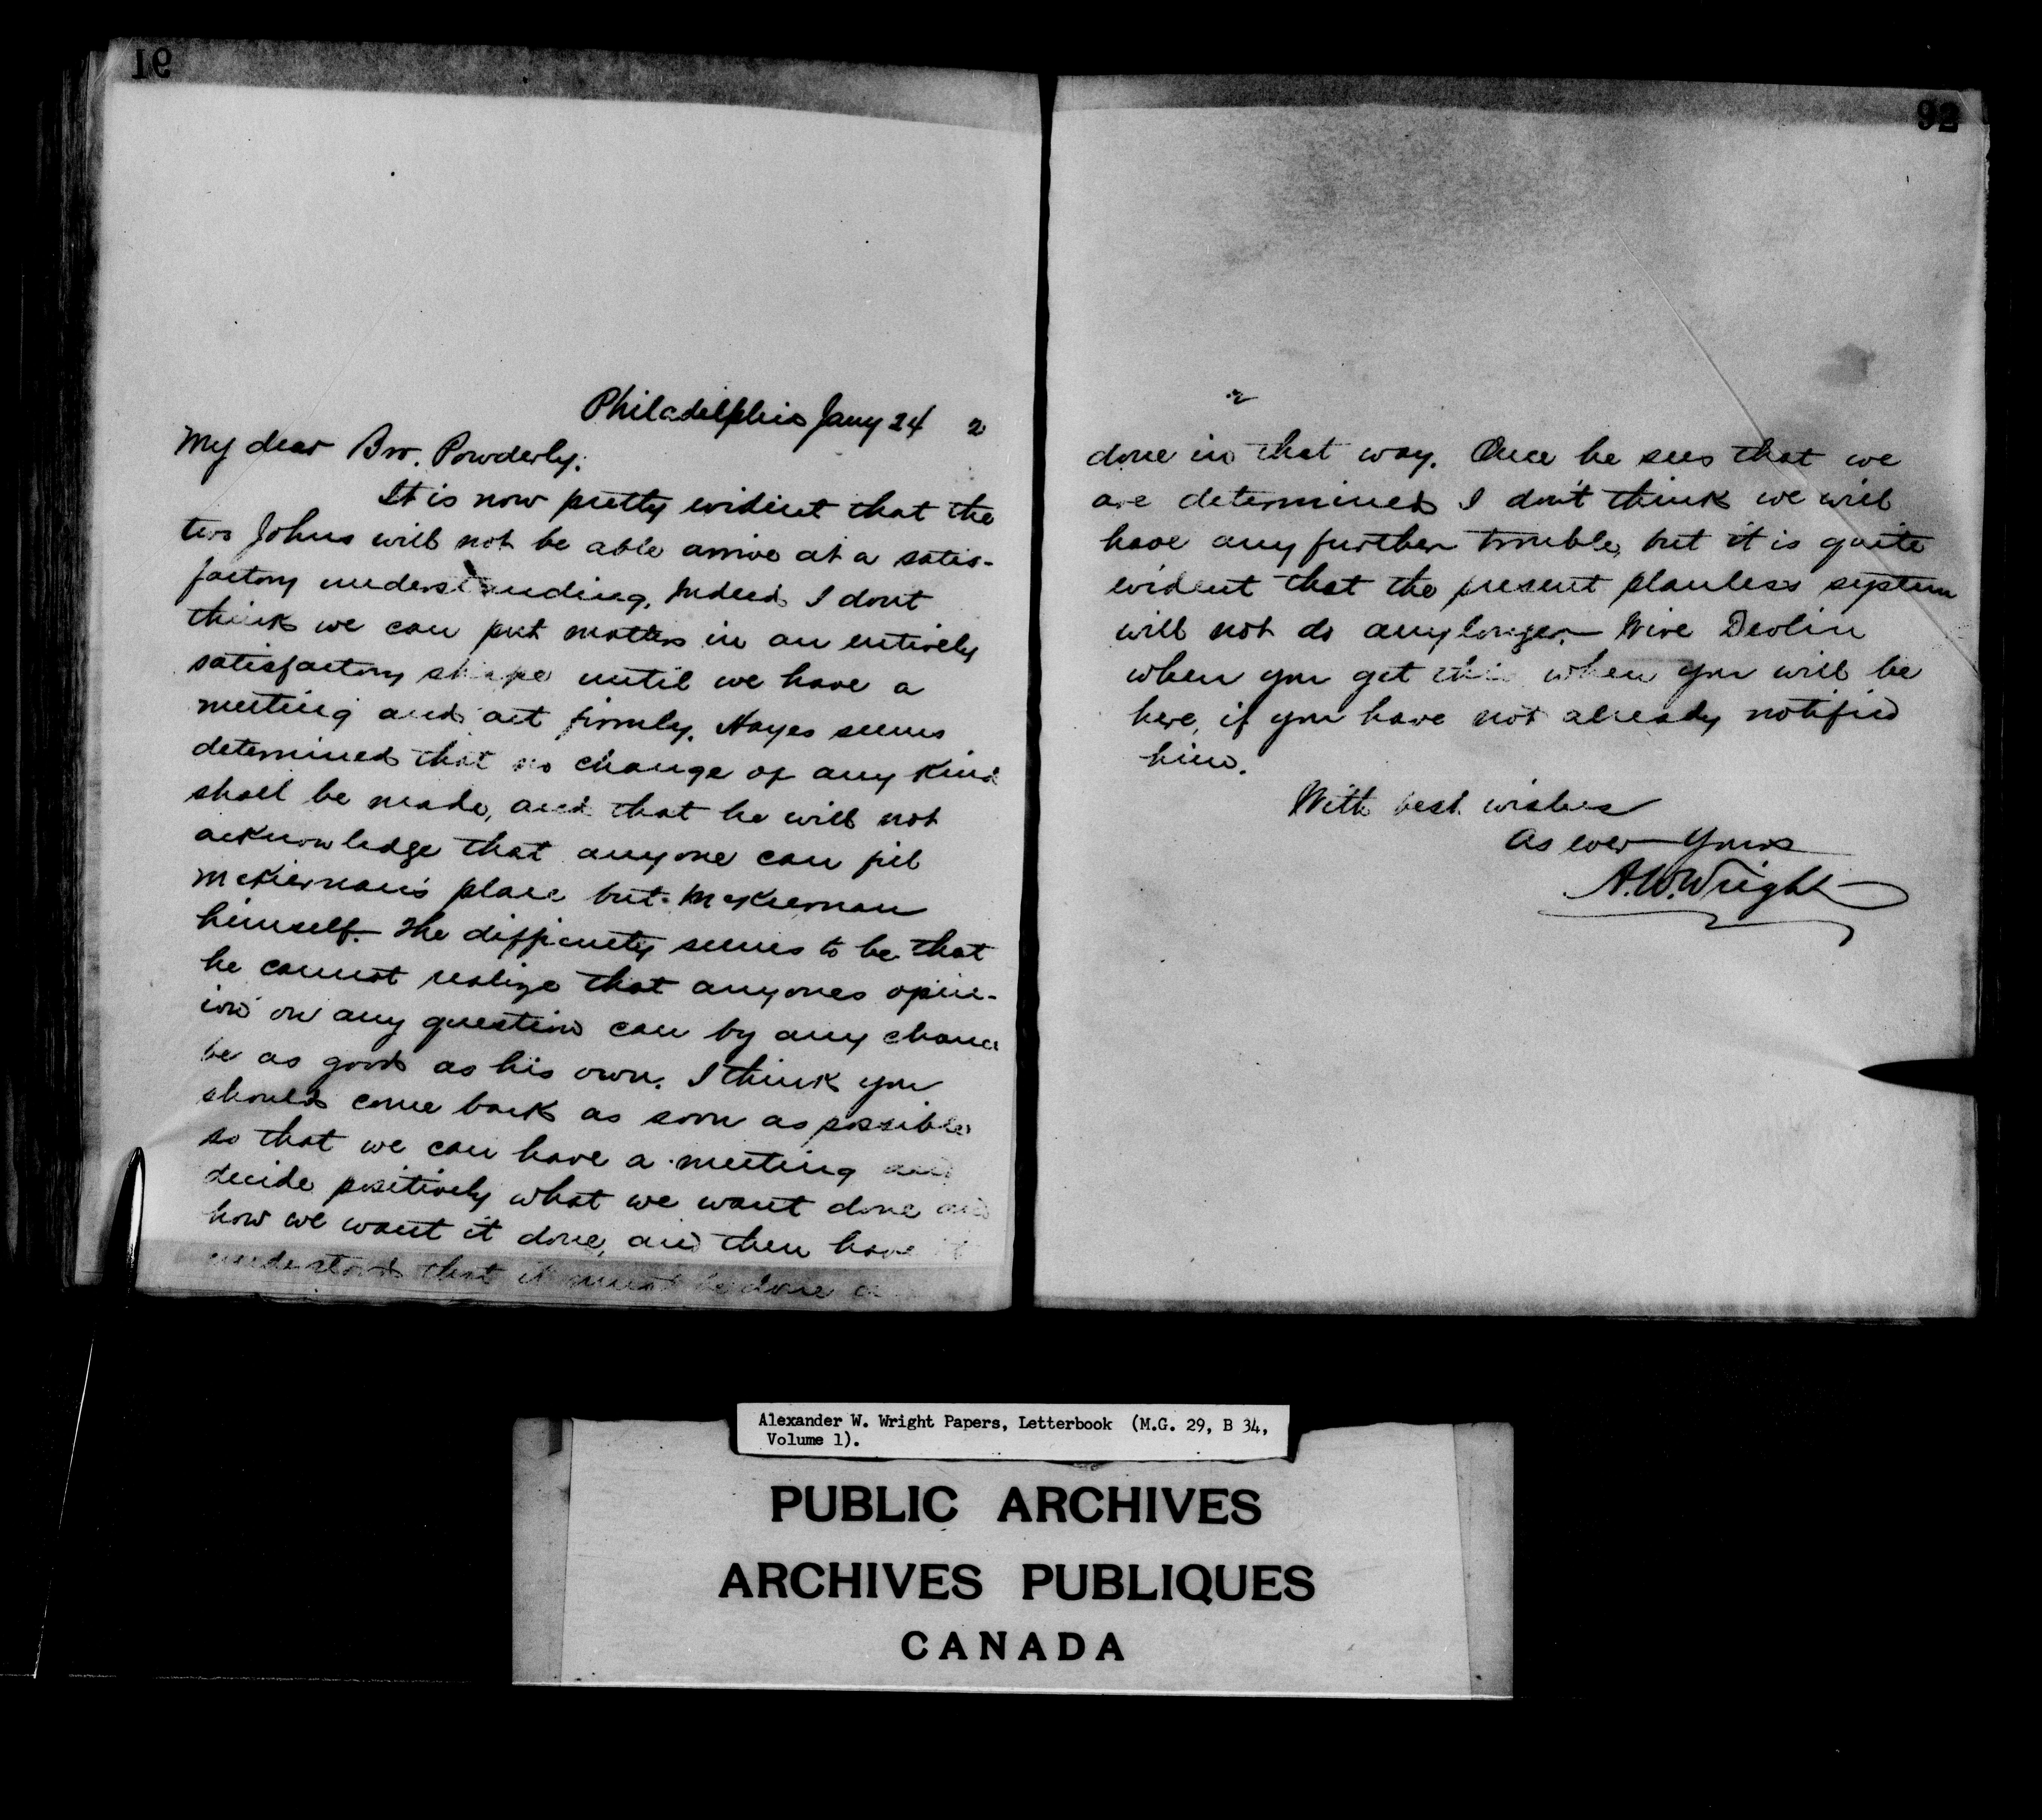 91
Philadelphia Jany 24 2
My dear Bro. Powderly:
It is now pretty evident that the
two Johns will not be able arrive at a satis-
factory understanding. Indeed I dont
think we can put matters in an entirely
satisfactory shape until we have a
meeting and act firmly. Hayes seems
determined that no change of any kind
shall be made, and that he will not
acknowledge that anyone can fill
McKiernan's place but McKiernan
himself. The difficulty seems to be that
he cannot realize that anyones opin-
ion on any question can by any chance
be as good as his own. I think you
should come back as soon as possible
so that we can have a meeting and
decide positively what we want done and
how we want it done, and then have it
understood that it must be done
92
2
done in that way. Once he sees that we
are determined I don't think we will
have any further trouble, but it is quite
evident that the present planless system
will not do any longer. Wire Devlin
when you get this when you will be
here, if you have not already notified
him.
With best wishes
As ever Yours
A.W. Wright
Alexander W. Wright Papers, Letterbook (M.G. 29, B 34,
Volume 1).
PUBLIC ARCHIVES
ARCHIVES PUBLIQUES
CANADA